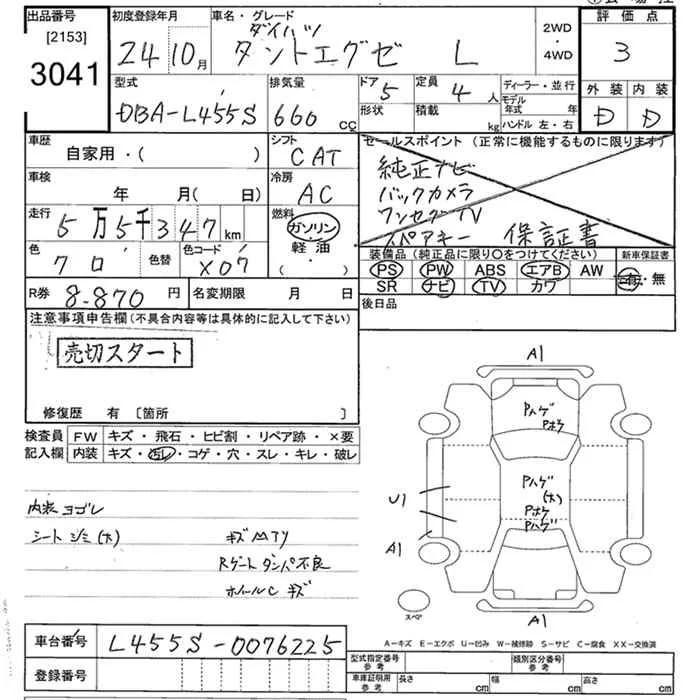 出品番号
[2153]
3041
初度登録年月
24 10月
車名・グレード
ダイハツ
タントエグゼ L
2WD
・
4WD
評価点
3
型式
DBA-L455S
排気量
660 cc
ドア
5
定員
4 人
形状
積載
kg
ディーラー・並行
モデル年式 年
ハンドル 左・右
外装 内装
D D
車歴
自家用・( )
シフト
CAT
車検
年 月( 日)
冷房
AC
走行
5万5千347 km
燃料
ガソリン
軽・油
・( )
色
クロ
色替
色コード
X07
セールスポイント (正常に機能するものに限ります)
純正ナビ
バックカメラ
ワンセグTV
スペアキー 保証書
装備品 (純正品に限り○をつけてください)
新車保証書
PS PW ABS エアB AW
SR ナビ TV カワ
有・無
R券 8-870 円
名変期限 月 日
後日品
注意事項申告欄 (不具合内容等は具体的に記入して下さい)
売切スタート
修復歴 有 〔箇所 〕
検査員
記入欄
FW キズ・飛石・ヒビ割・リペア跡・×要
内装 キズ・汚レ・コゲ・穴・スレ・キレ・破レ
内装 ヨゴレ
シート シミ(大)
キズ
Rゲート ダンパ不良
ホイールC キズ
A1
Pハゲ
Pボケ
Pハゲ
(大)
Pボケ
Pハゲ
U1
A1
A1
スペア
A-キズ E-エクボ U-凹み W-補修跡 S-サビ C-腐食 XX-交換済
車台番号 L455S-0076225
登録番号
型式指定番号
参考
類別区分番号
参考
車庫証明用
参考
長さ cm 幅 cm 高さ cm